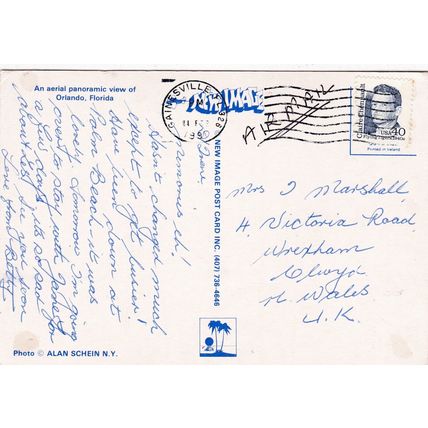 An aerial panoramic view of
Orlando, Florida
Hasn't changed much
except to get busier!
down at
Palm Beach it was
lovely. Tomorrow I'm going
to stay with
a few days. It's so sad
about see you soon
Love from Betty
Photo © ALAN SCHEIN N.Y.
NEW IMAGE POST CARD INC. (407) 736-4646
GAINESVILLE FL 326
PM
1990
NEW IMAGE
AIR MAIL
USA 40
Printed in Ireland
Mrs J Marshall,
4, Victoria Road,
Wrexham
Clwyd
N. Wales
U.K.